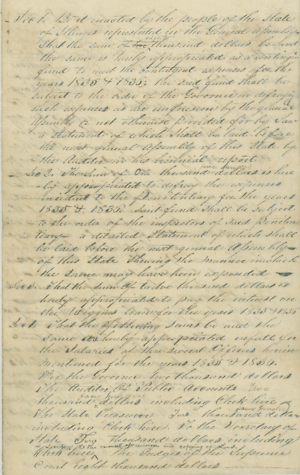 Sec 1. Be it enacted by the people of the State
of Illinois represented in the General Assembly
That the sum of thousand dollars be and
the same is hereby appropriated as a contingent
fund to meet the contingent expenses for the
years 1835 & 1836. The said fund shall be
subject to the order of the Governor in defraying
such expenses as are unforeseen by the General
Assembly & not otherwise provided for by law
a statement of which shall be laid before
the next general assembly of this State by
the Auditor in his biennial report
Sec 2. The sum of One thousand dollars is here
by appropriated to defray the expenses
incident to the Penitentiary for the years
1835 & 1836. Said fund shall be subject
to the order of the inspectors of said Peniten
tiary a detailed statement of which shall
be laid before the next general assembly
of this State showing the manner in which
the same may have been expended
Sec 3 That the sum of twelve thousand dollars is
hereby appropriated to pay the interest on
the Loan for the years 1835 & 1836
Sec 4. That the following sums be and the
same are hereby appropriated
the Salaries of the several Officers herein
mentioned for the years 1835 & 1836.
To the Governor two thousand dollars
The Auditor of Public Accounts
thousand dollars including Clerk hire
The State Treasurer thousand dollars
including Clerk hire. To the Secretary of
State Two thousand dollars including
Clerk hire The Judges of the Supreme
Court eight thousand dollars